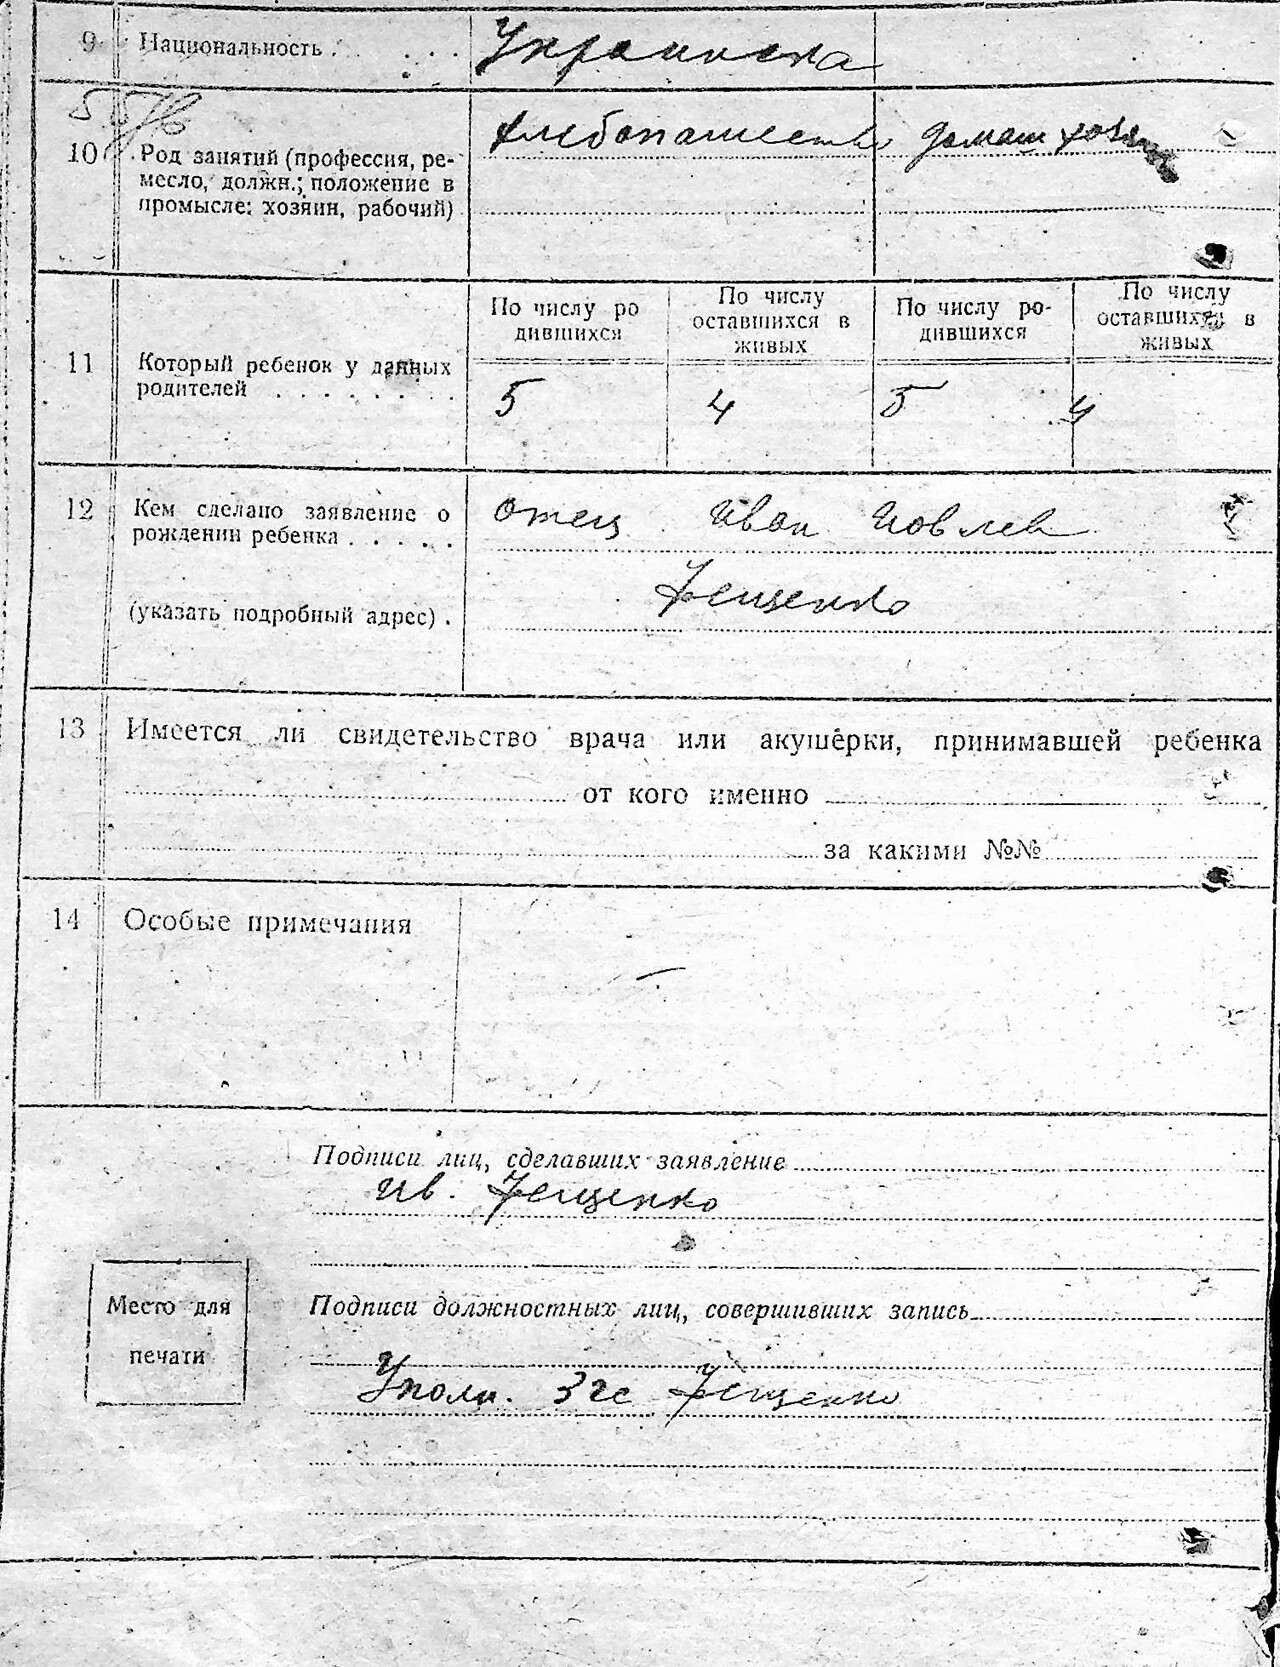 9 Национальность . . . . Украинска
55/6
хлебопашество домаш хозяй
10 Род занятий (профессия, ре-
месло, должн.; положение в
промысле: хозяин, рабочий)
По числу ро
дившихся
По числу
оставшихся в
живых
По числу ро-
дившихся
По числу
оставшихся в
живых
11 Который ребенок у данных
родителей . . . . . . . .
5 4 5 4
12 Кем сделано заявление о
рождении ребенка . . . . .
отец Иван Иовлев
Ференко
(указать подробный адрес) .
13 Имеется ли свидетельство врача или акушёрки, принимавшей ребенка
от кого именно
за какими №№
14 Особые примечания
—
Подписи лиц, сделавших заявление
Ив.
Подписи должностных лиц, совершивших запись
Место для
печати
Уполн. Згс